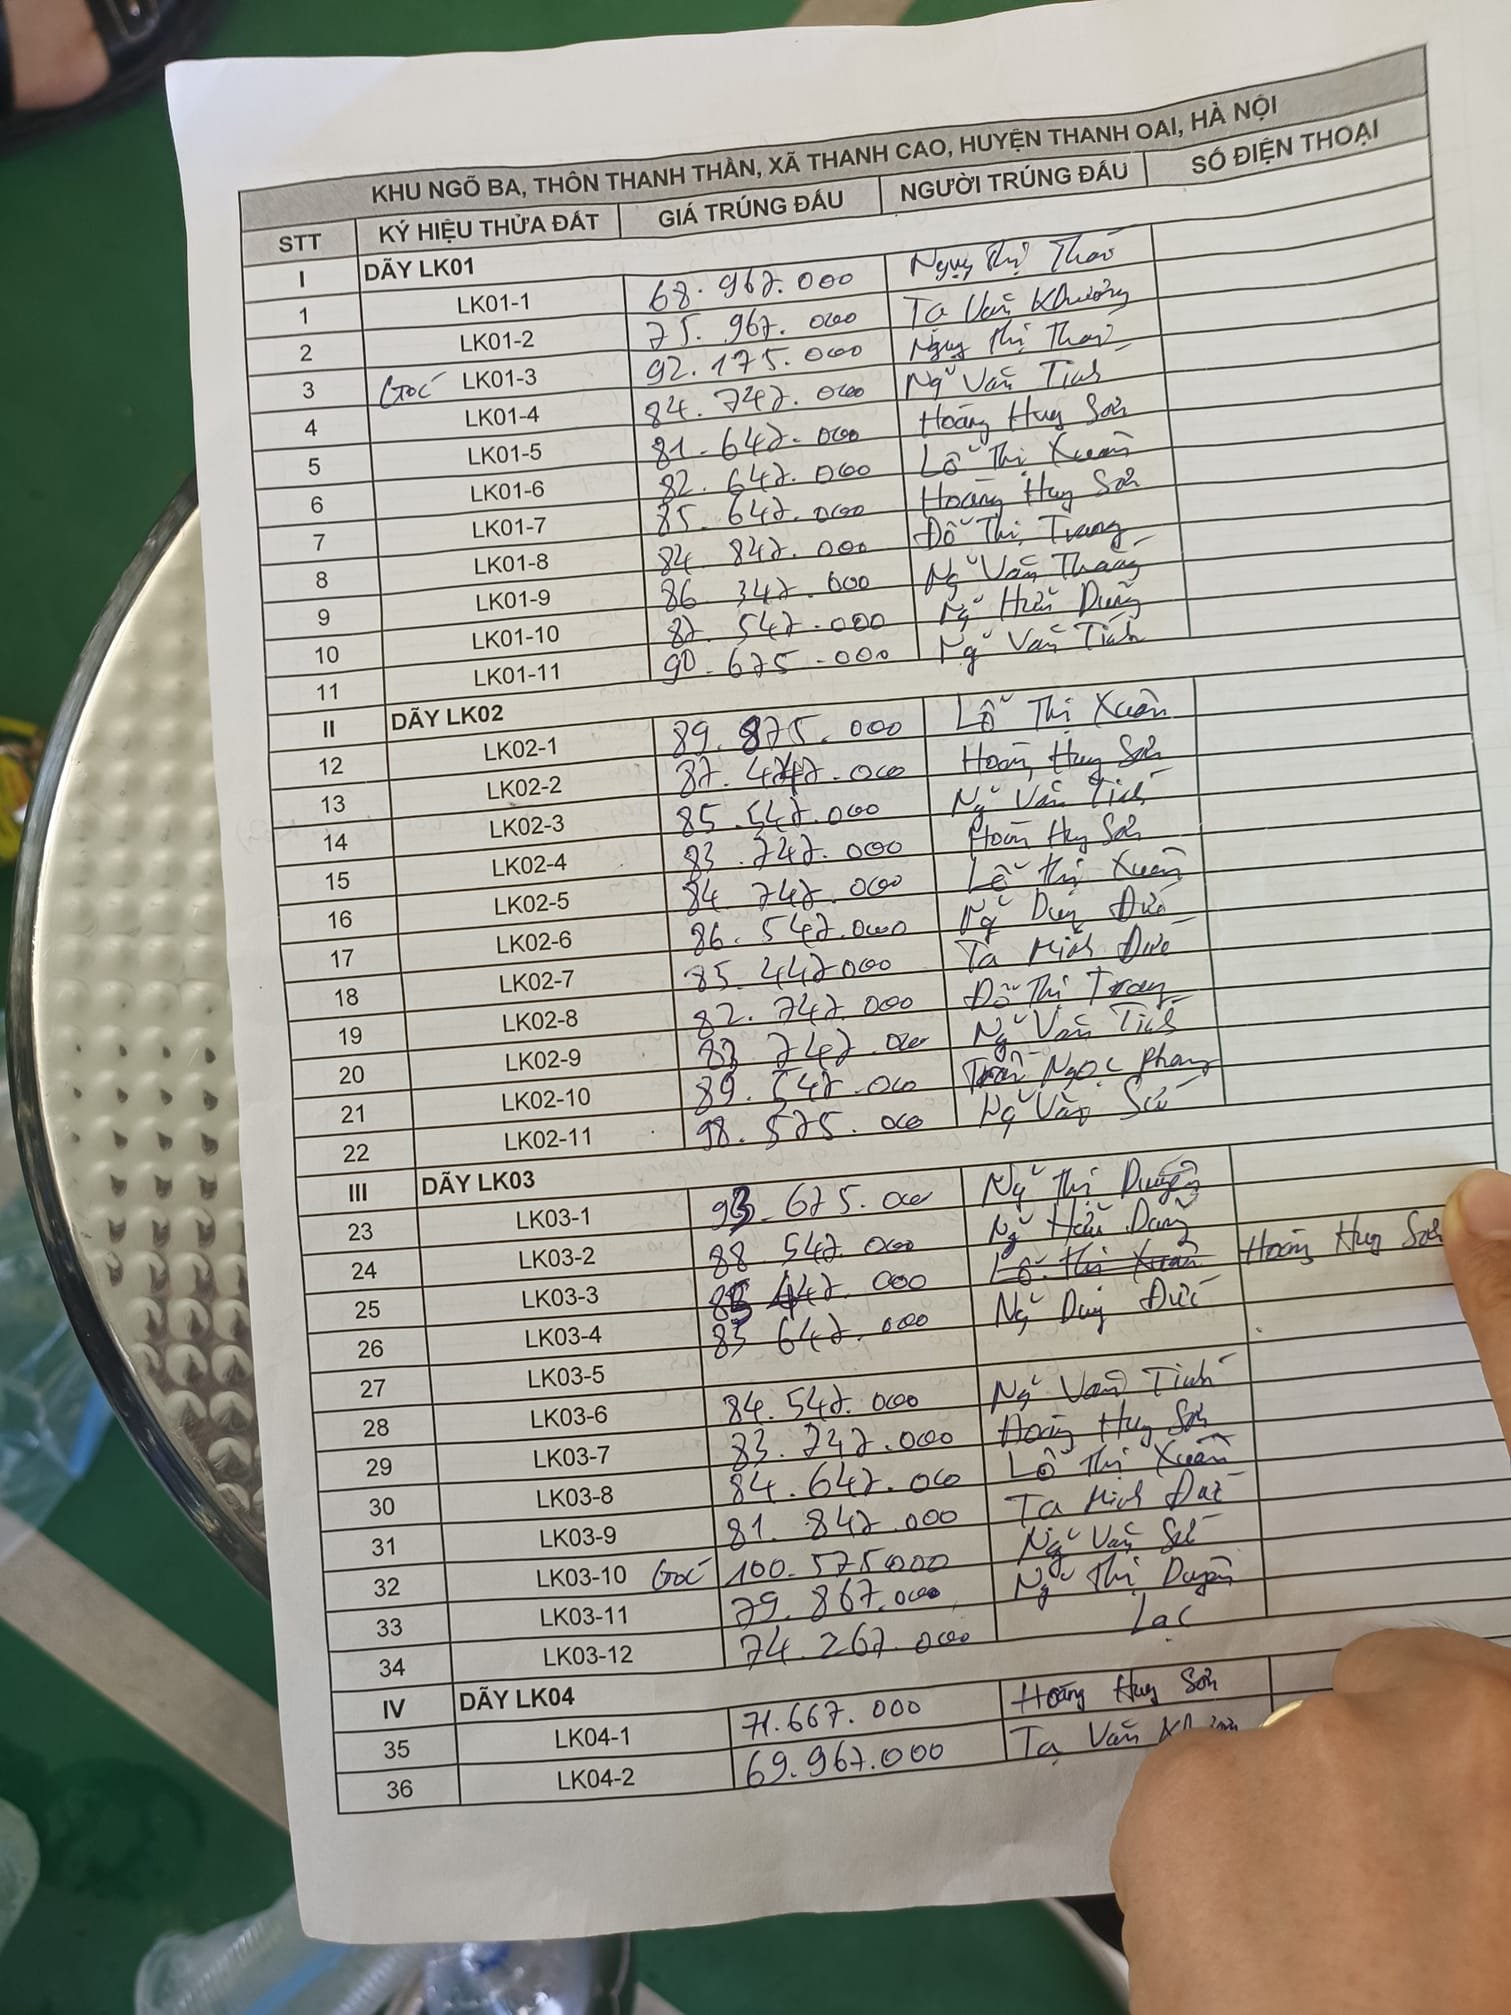 KHU NGÕ BA, THÔN THANH THẦN, XÃ THANH CAO, HUYỆN THANH OAI, HÀ NỘI
STT KÝ HIỆU THỬA ĐẤT GIÁ TRÚNG ĐẤU NGƯỜI TRÚNG ĐẤU SỐ ĐIỆN THOẠI
I DÃY LK01
1 LK01-1 68.967.000 Thị Thao
2 LK01-2 75.967.000 Tạ Văn Khương
3 Góc LK01-3 92.175.000 Thị Thao
4 LK01-4 84.747.000 Ng Văn Tình
5 LK01-5 81.647.000 Hoàng Huy Sơn
6 LK01-6 82.647.000 Lỗ Thị Xuân
7 LK01-7 85.647.000 Hoàng Huy Sơn
8 LK01-8 84.847.000 Đỗ Thị Trang
9 LK01-9 86.347.000 Ng Văn Thắng
10 LK01-10 87.547.000 Ng Hữu Dũng
11 LK01-11 90.675.000 Ng Văn Tình
II DÃY LK02
12 LK02-1 89.875.000 Lỗ Thị Xuân
13 LK02-2 Hoàng Huy Sơn
14 LK02-3 85.547.000 Ng Văn Tình
15 LK02-4 83.747.000 Hoàng Huy Sơn
16 LK02-5 84.747.000 Lỗ Thị Xuân
17 LK02-6 86.547.000 Ng Duy Đức
18 LK02-7 85.447000 Tạ Minh Đức
19 LK02-8 82.747.000 Đỗ Thị Trang
20 LK02-9 83.747.000 Ng Văn Tình
21 LK02-10 89.547.000 Trần Ngọc Phong
22 LK02-11 98.575.000 Ng Văn
III DÃY LK03
23 LK03-1 93.675.000 Ng Thị Duyên
24 LK03-2 88.547.000 Ng Hữu Dũng
25 LK03-3 Lỗ Thị Xuân Hoàng Huy Sơn
26 LK03-4 83 647.000 Ng Duy Đức
27 LK03-5
28 LK03-6 84.547.000 Ng Văn Tình
29 LK03-7 83.747.000 Hoàng Huy Sơn
30 LK03-8 84.647.000 Lỗ Thị Xuân
31 LK03-9 81.847.000 Tạ Minh Đức
32 LK03-10 Góc 100.575000 Ng Văn
33 LK03-11 79.867.000 Ng Thị Duyên
34 LK03-12 74.267.000 Lạc
IV DÃY LK04
35 LK04-1 71.667.000 Hoàng Huy Sơn
36 LK04-2 69.967.000 Tạ Văn